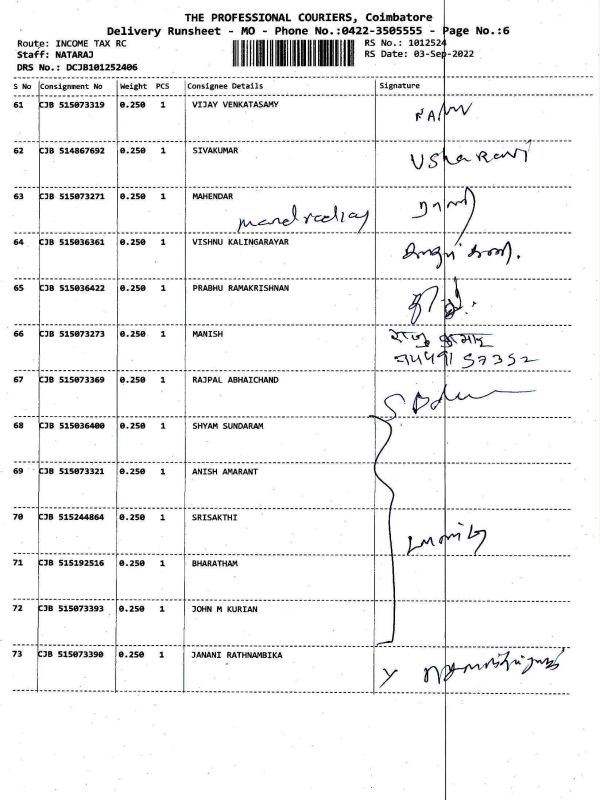 THE PROFESSIONAL COURIERS, Coimbatore
Delivery Runsheet - MO - Phone No.:0422-3505555 - Page No.:6
Route: INCOME TAX RC RS No.: 1012524
Staff: NATARAJ RS Date: 03-Sep-2022
DRS No.: DCJB101252406
S No Consignment No Weight PCS Consignee Details Signature
61 CJB 515073319 0.250 1 VIJAY VENKATASAMY
62 CJB 514867692 0.250 1 SIVAKUMAR Usha Ravi
63 CJB 515073271 0.250 1 MAHENDAR
64 CJB 515036361 0.250 1 VISHNU KALINGARAYAR
65 CJB 515036422 0.250 1 PRABHU RAMAKRISHNAN
66 CJB 515073273 0.250 1 MANISH
67 CJB 515073369 0.250 1 RAJPAL ABHAICHAND
68 CJB 515036400 0.250 1 SHYAM SUNDARAM
69 CJB 515073321 0.250 1 ANISH AMARANT
70 CJB 515244864 0.250 1 SRISAKTHI
71 CJB 515192516 0.250 1 BHARATHAM
72 CJB 515073393 0.250 1 JOHN M KURIAN
73 CJB 515073390 0.250 1 JANANI RATHNAMBIKA